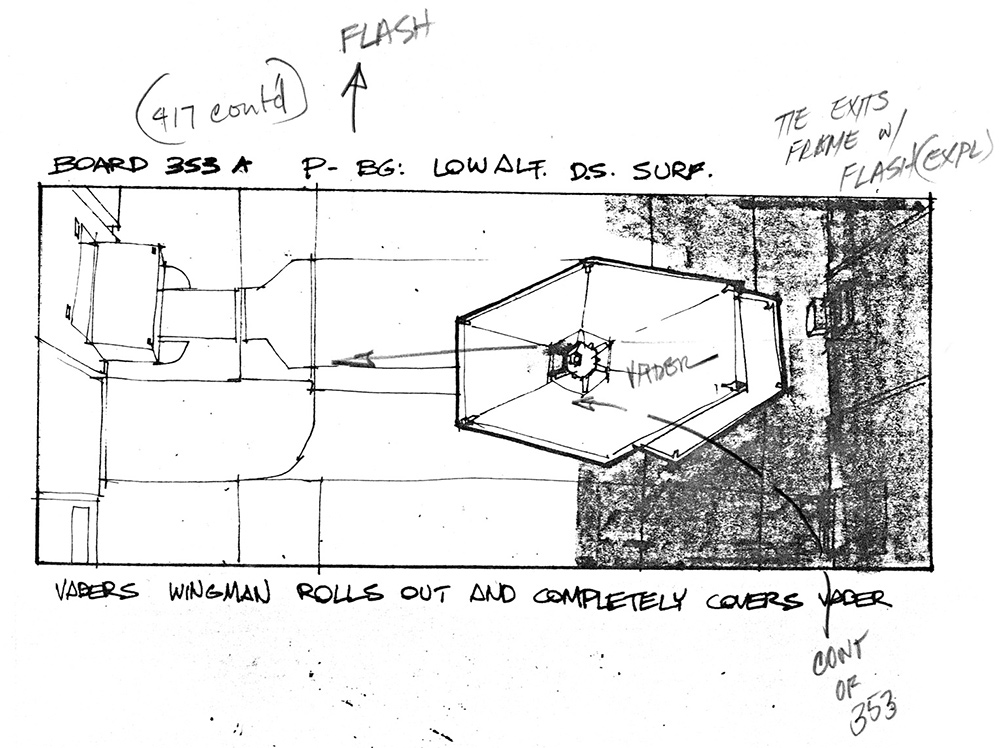 FLASH
(417 cont'd)
TIE EXITS
FRAME W/
FLASH (EXPL)
BOARD 353 A P- BG: LOW ALT. D.S. SURF.
VADER
VADERS WINGMAN ROLLS OUT AND COMPLETELY COVERS VADER
CONT
OF
353